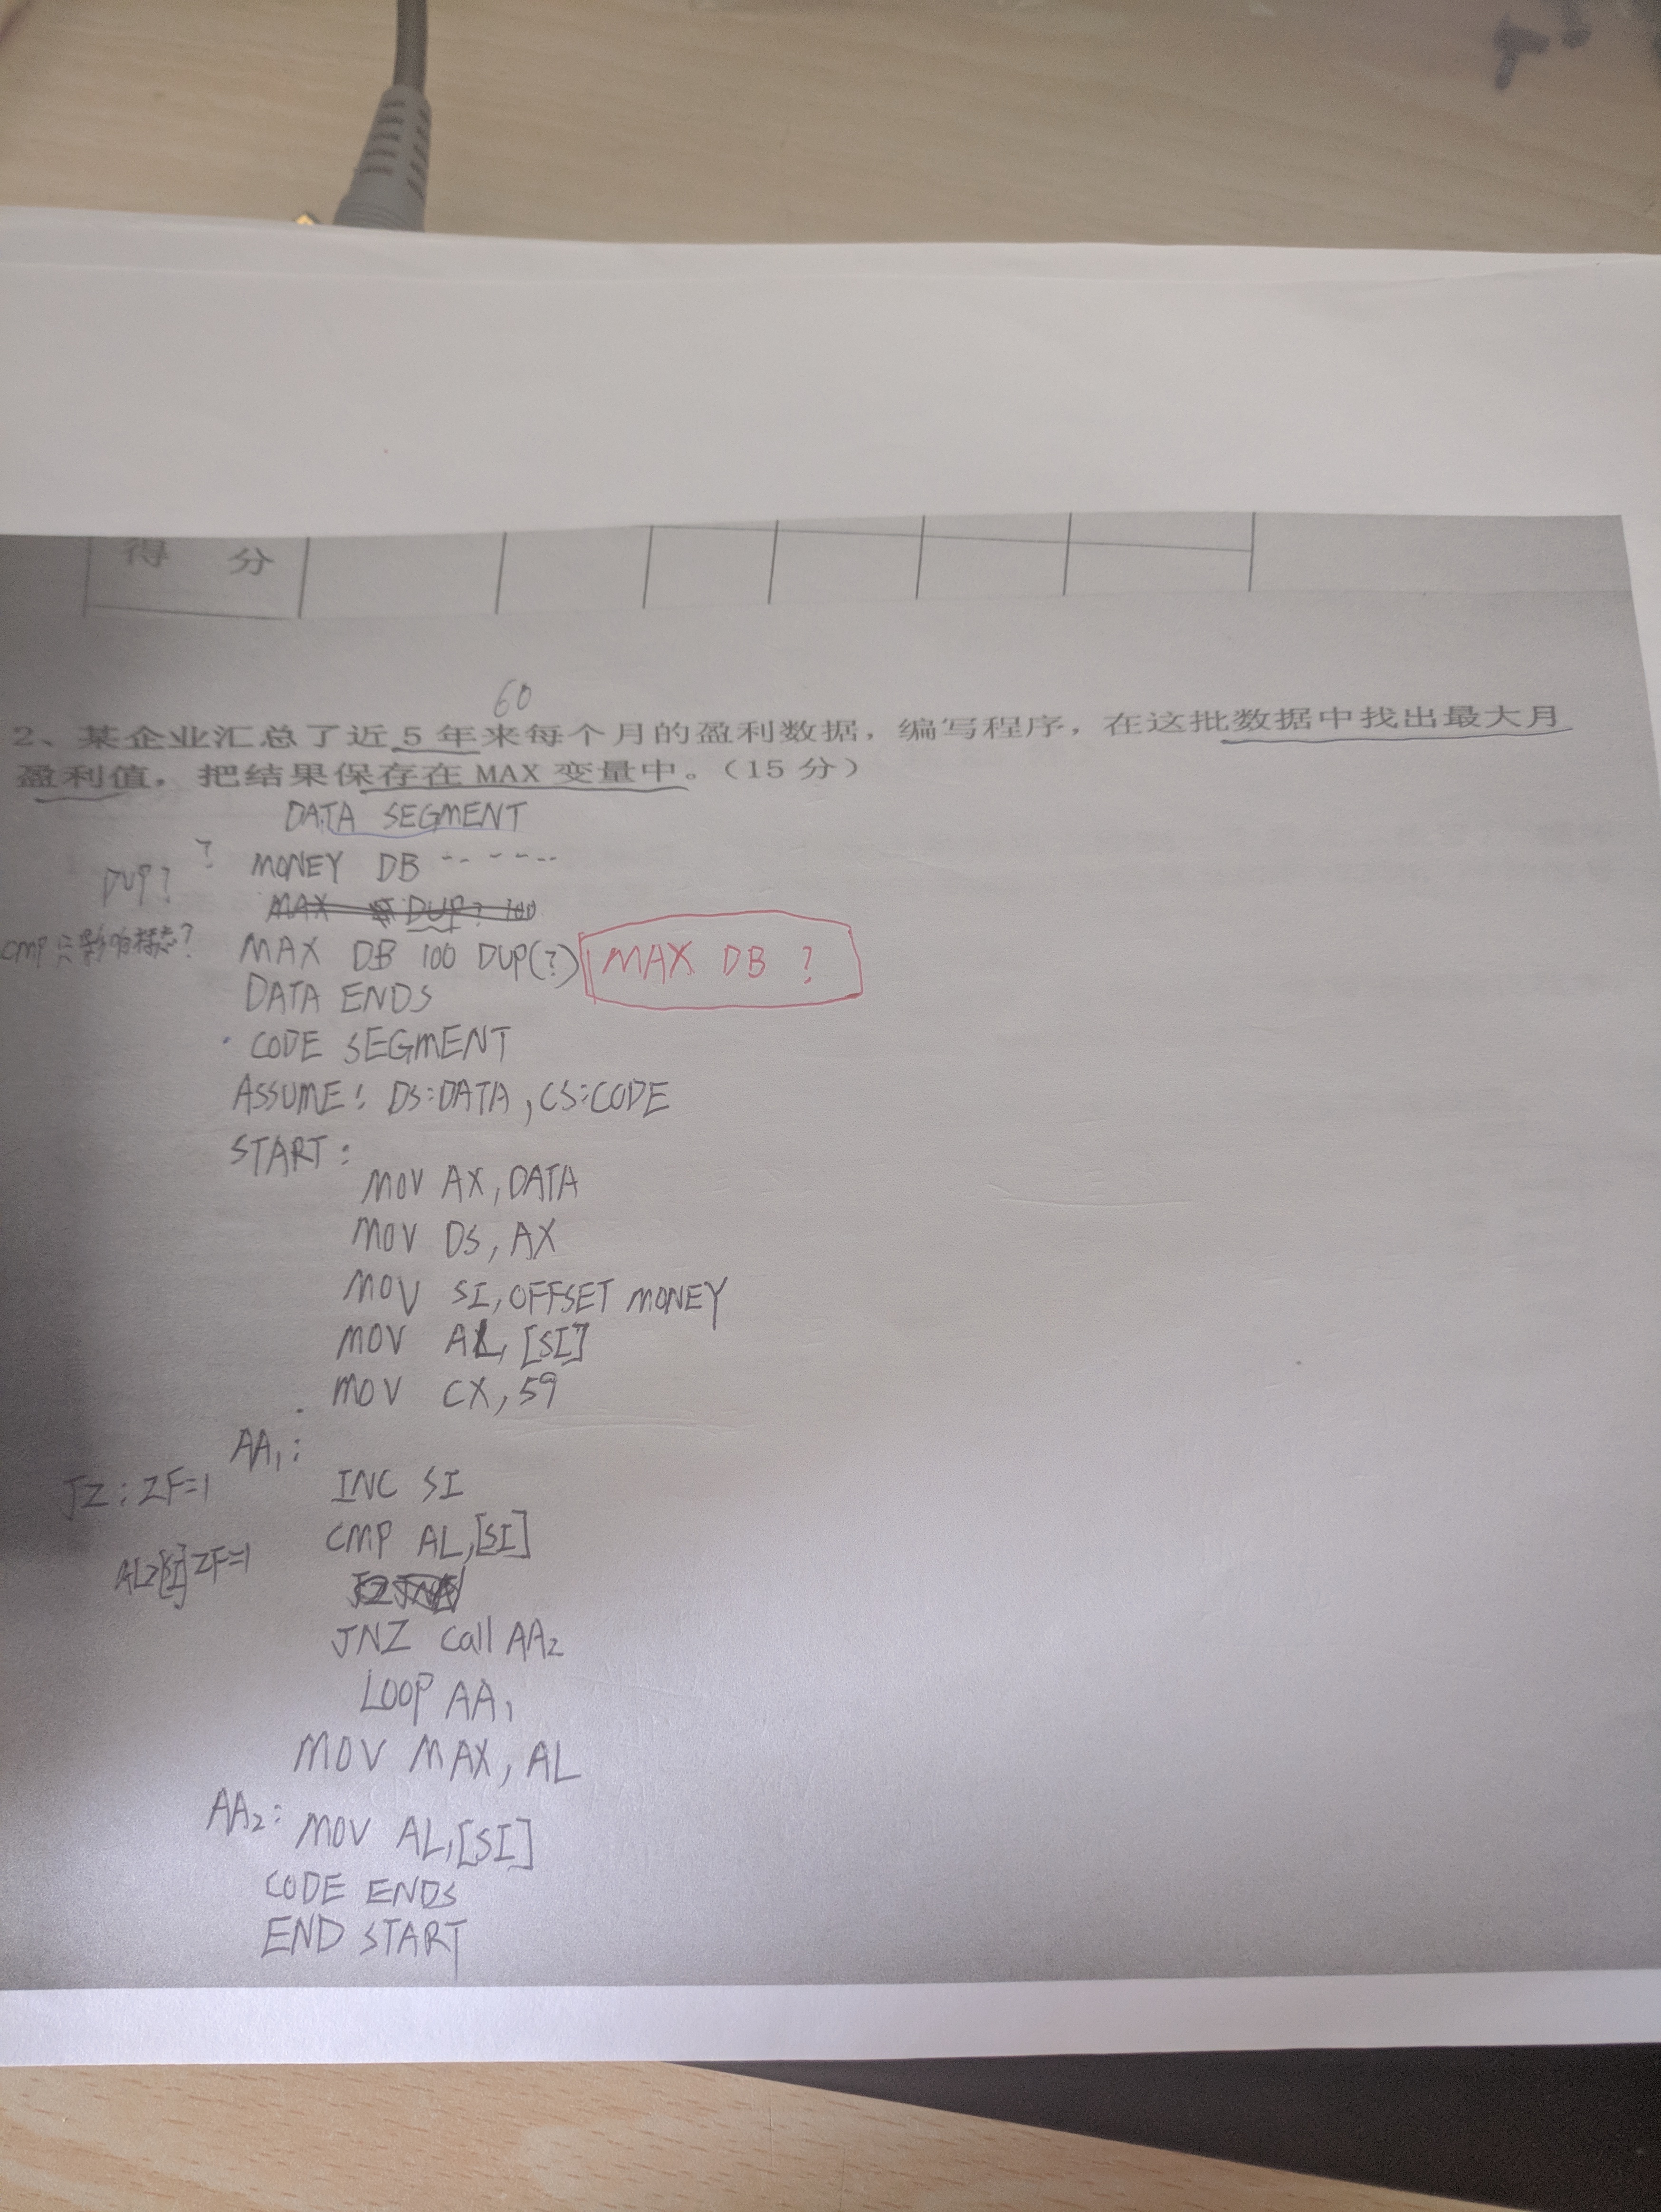 得 分
60
2、某企业汇总了近 5 年来每个月的盈利数据，编写程序，在这批数据中找出最大月
盈利值，把结果保存在 MAX 变量中。（15 分）
DATA SEGMENT
? MONEY DB -- - - --
DUP?
MAX DUP? 100
CMP只影响标志?
MAX DB 100 DUP(?) MAX DB ?
DATA ENDS
CODE SEGMENT
ASSUME: DS:DATA, CS:CODE
START:
MOV AX, DATA
MOV DS, AX
MOV SI, OFFSET MONEY
MOV AL, [SI]
MOV CX, 59
AA1:
JZ: ZF=1 INC SI
CMP AL,[SI]
[SI] ZF=1
JNZ Call AA2
LOOP AA1
MOV MAX, AL
AA2: MOV AL,[SI]
CODE ENDS
END START